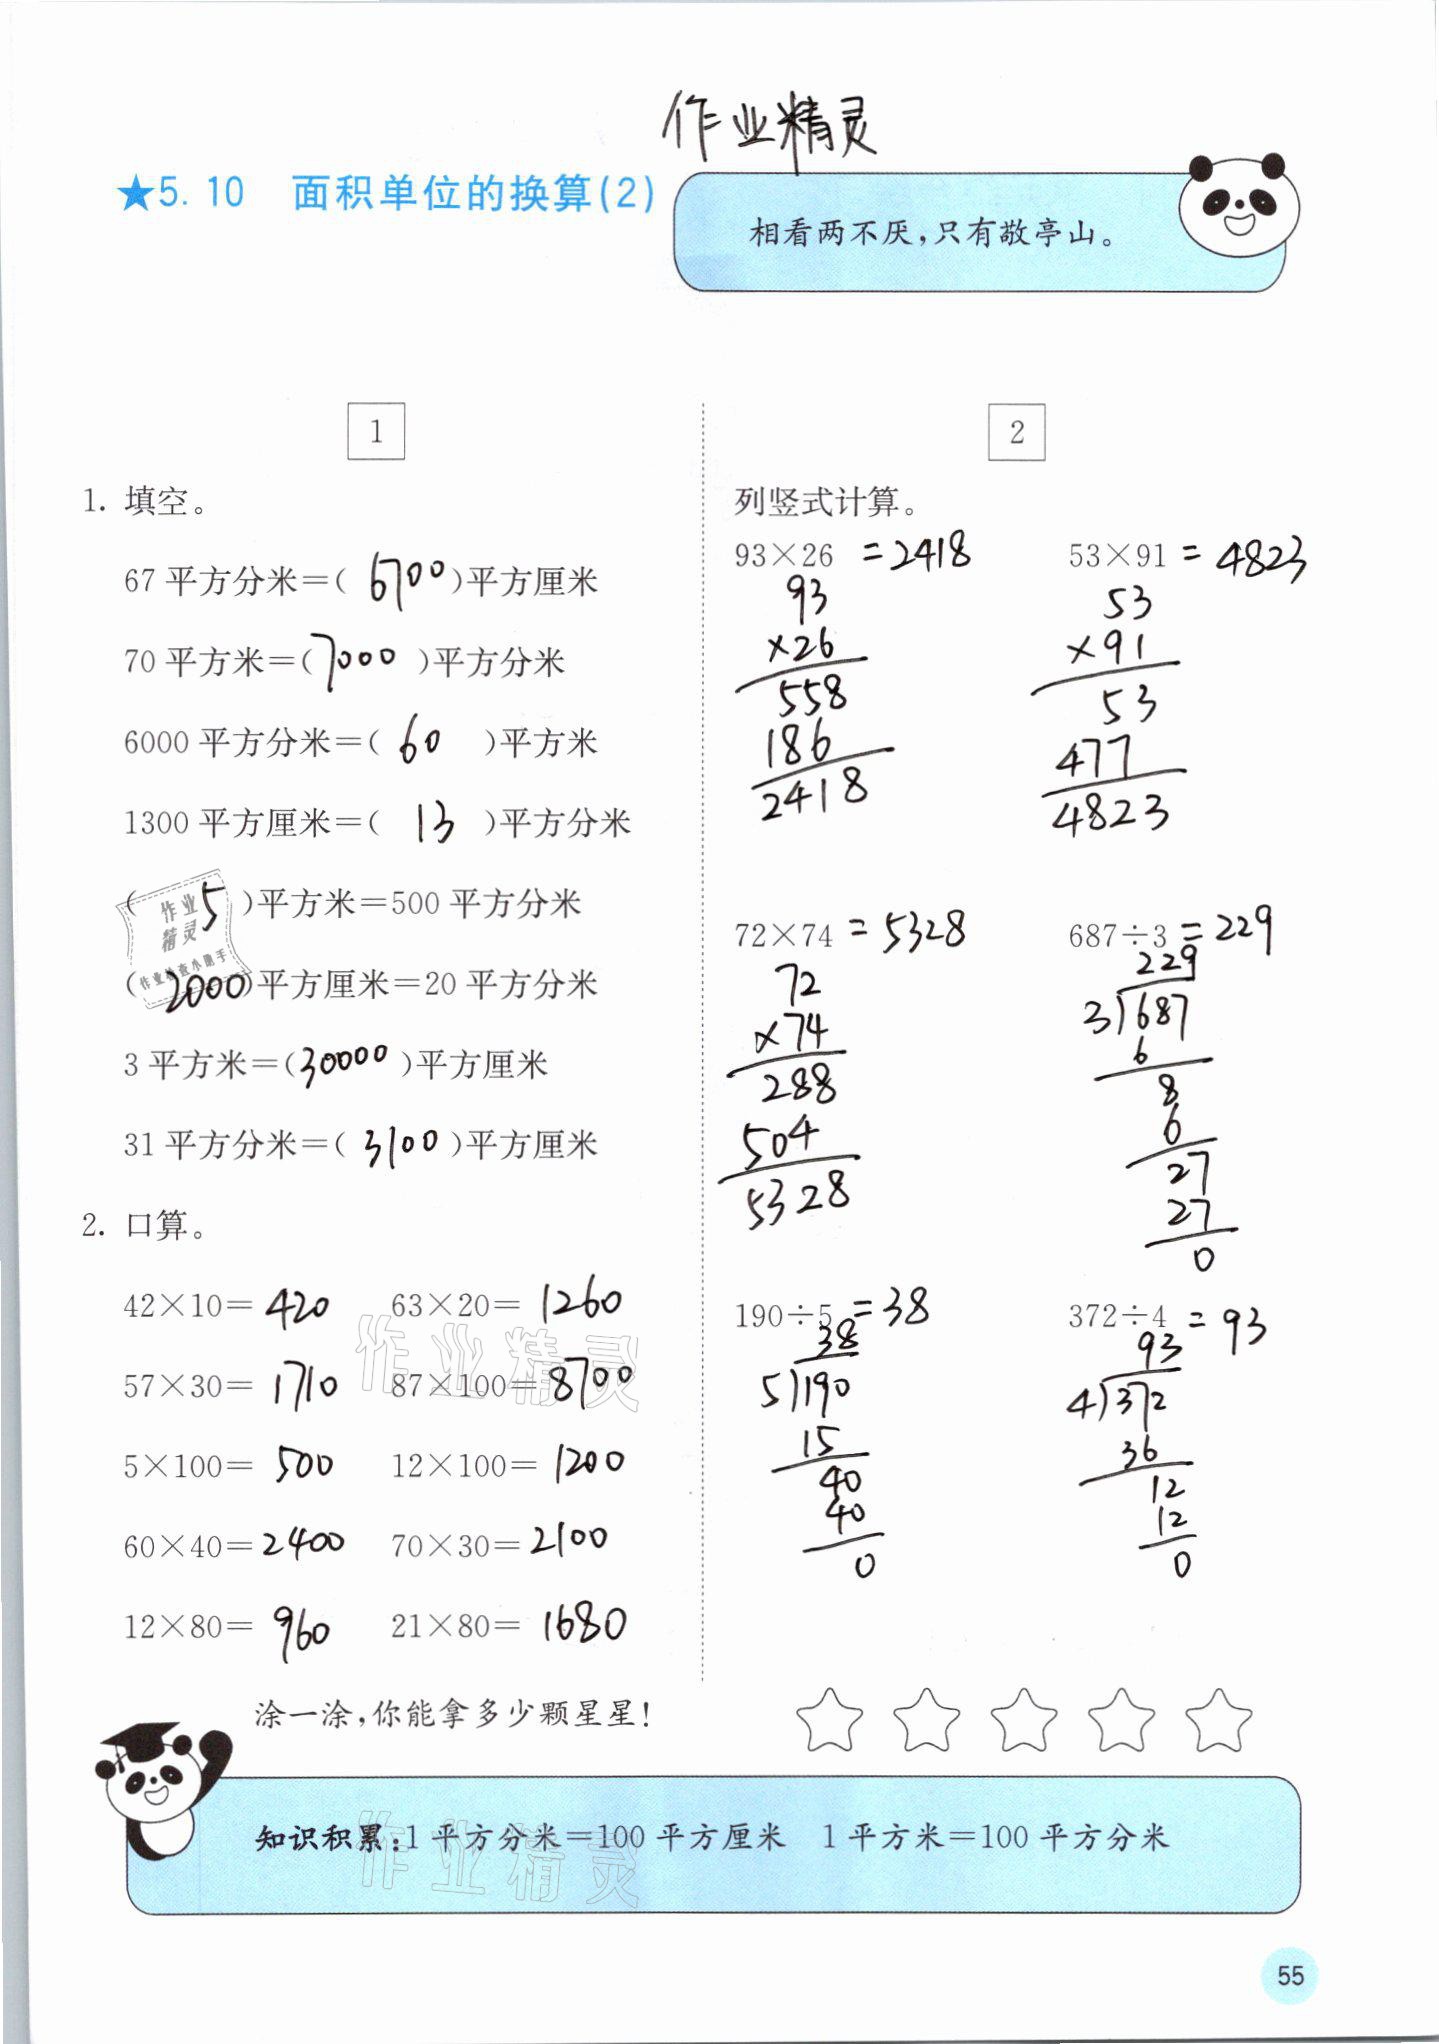 作业精灵
★5.10 面积单位的换算(2)
相看两不厌,只有敬亭山。
1
1. 填空。
67平方分米=( 6700 )平方厘米
70平方米=( 7000 )平方分米
6000平方分米=( 60 )平方米
1300平方厘米=( 13 )平方分米
( 5 )平方米=500平方分米
( 2000 )平方厘米=20平方分米
3平方米=( 30000 )平方厘米
31平方分米=( 3100 )平方厘米
作业
精灵
作业检查小助手
2. 口算。
42×10= 420 63×20= 1260
57×30= 1710 87×100= 8700
5×100= 500 12×100= 1200
60×40= 2400 70×30= 2100
12×80= 960 21×80= 1680
作业精灵
2
列竖式计算。
93×26 =2418
93
×26
558
186
2418
53×91 = 4823
53
×91
53
477
4823
72×74 = 5328
72
×74
288
504
5328
687÷3 = 229
229
3)687
6
8
6
27
27
0
190÷5 =38
38
5)190
15
40
40
0
372÷4 = 93
93
4)372
36
12
12
0
涂一涂,你能拿多少颗星星!
知识积累:1平方分米=100平方厘米 1平方米=100平方分米
作业精灵
55